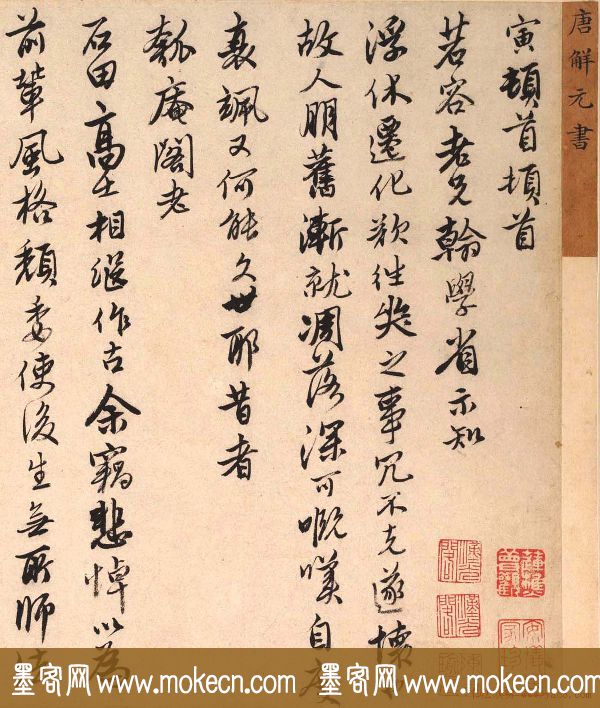 唐解元書
寅頓首頓首
若容老兄翰學省示知
浮休遷化欲往哭之事冗不克遂懷
故人朋舊漸就凋落深可嘅嘆自
衰颯又何能久世耶昔者
瓠庵閣老
石田高士相繼作古余竊悲悼以為
前輩風格頹委使後生無所師
墨客网 www.mokecn.com 墨客网 www.mokecn.com